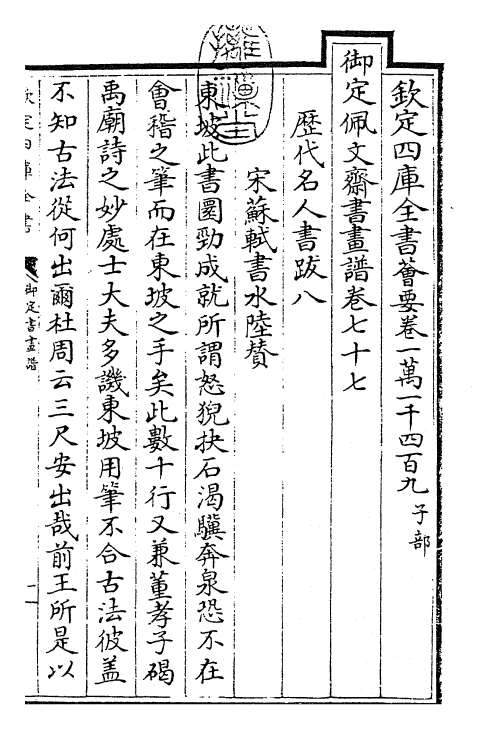 欽定四庫全書薈要卷一萬一千四百九 子部
御定佩文齋書畫譜卷七十七
歴代名人書跋八
宋蘇軾書水陸賛
東坡此書圜勁成就所謂怒猊抉石渴驥奔泉恐不在
會稽之筆而在東坡之手矣此數十行又兼董孝子碣
禹廟詩之妙處士大夫多譏東坡用筆不合古法彼盖
不知古法從何出爾杜周云三尺安出哉前王所是以
欽定四庫全書
御定書畫譜
一